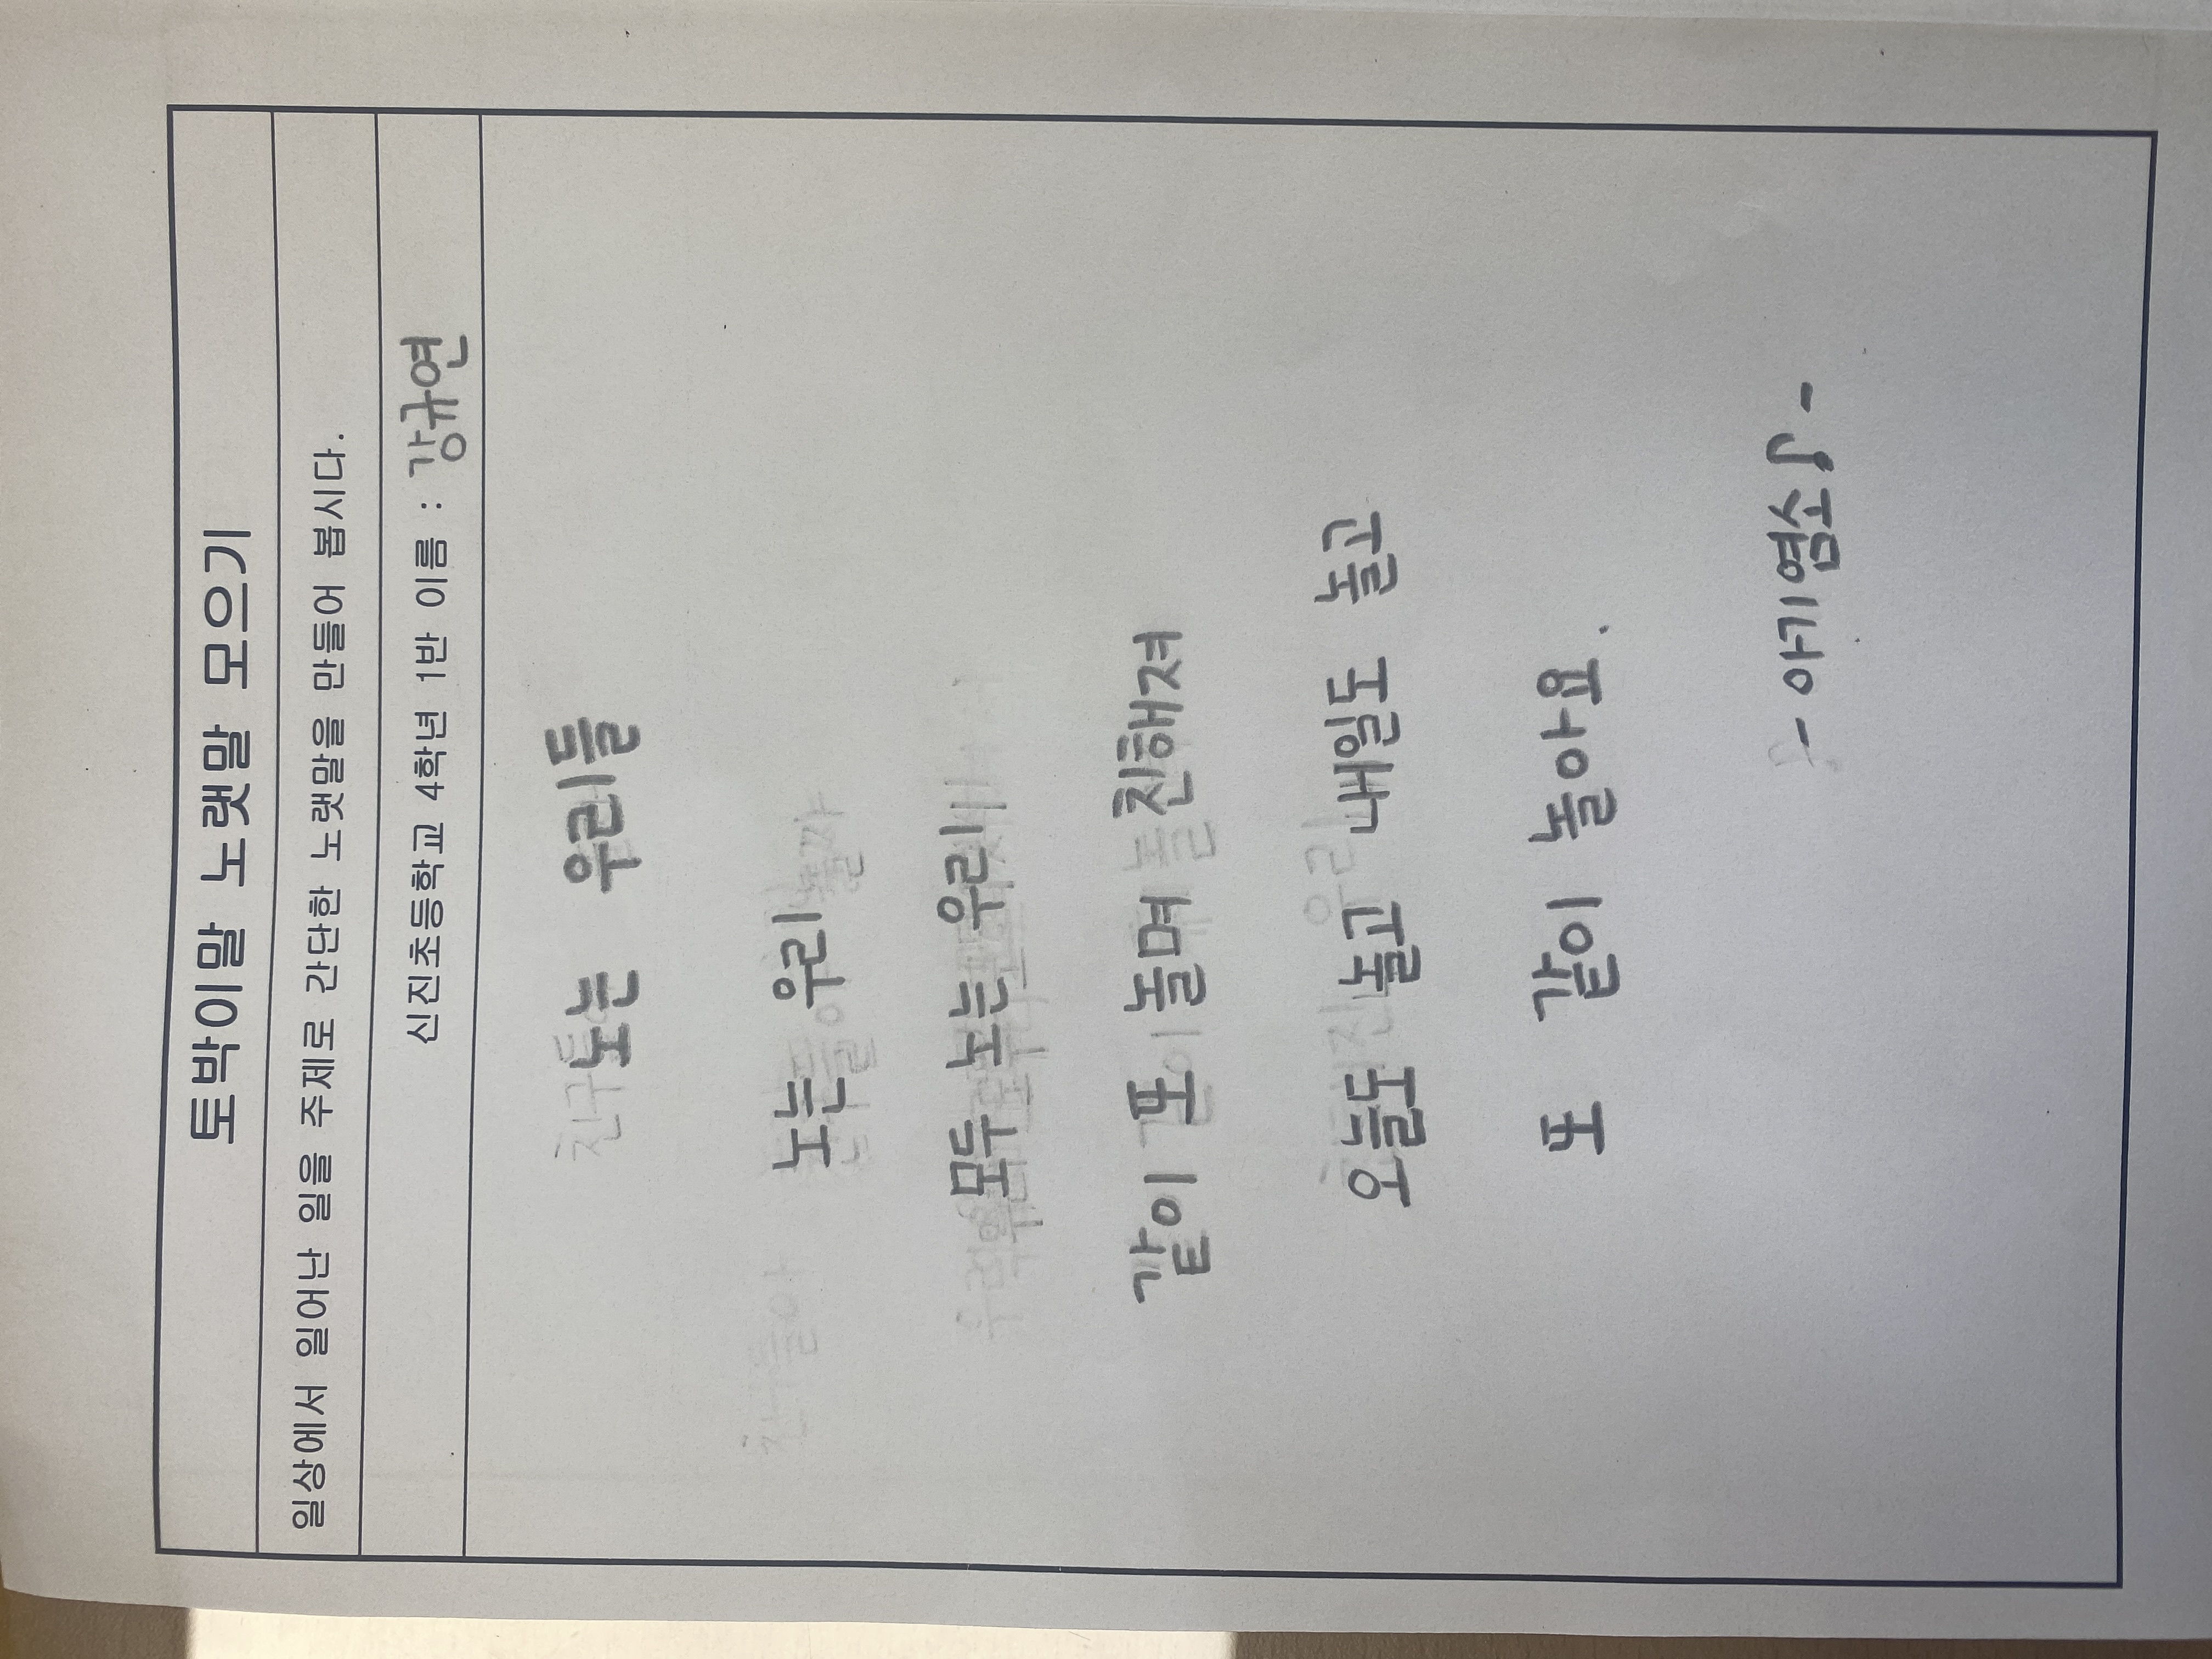 토박이말 노랫말 모으기
일상에서 일어난 일을 주제로 간단한 노랫말을 만들어 봅시다.
신진초등학교 4학년 1반 이름 : 강규연
노는 우리들
노는 우리
모두 노는 우리
같이 또 놀며 친해져
오늘도 놀고 내일도 놀고
또 같이 놀아요.
- 아기염소♪ -